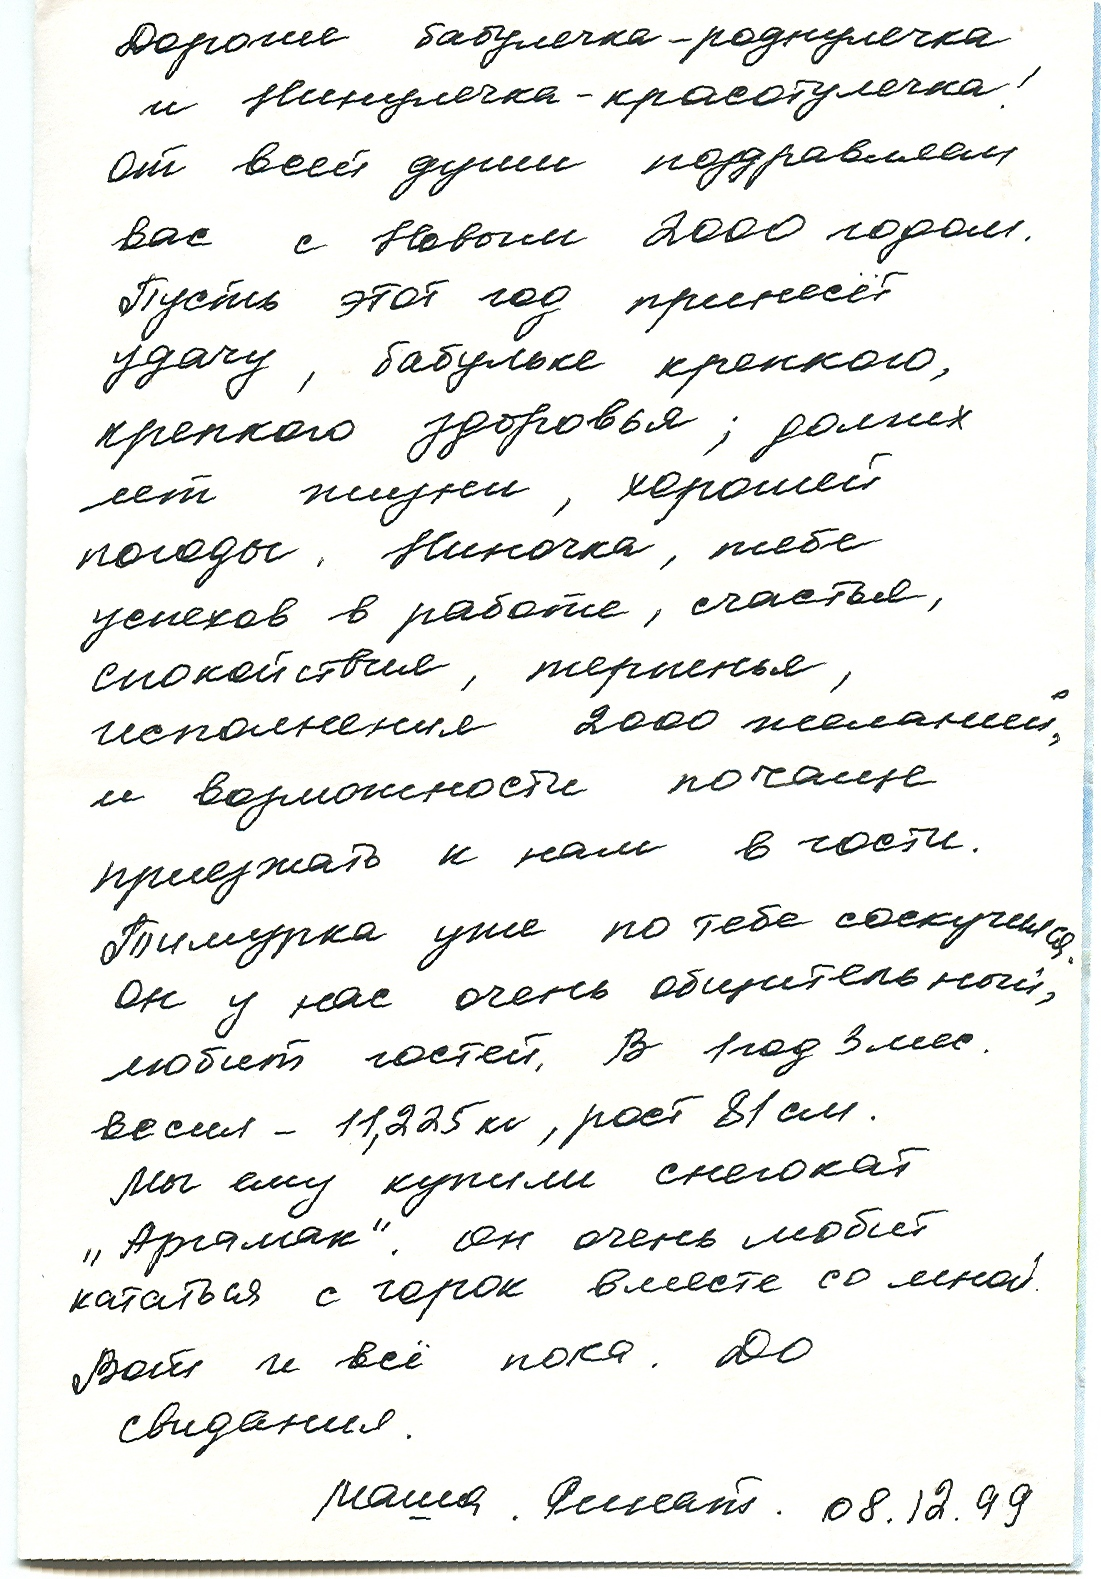 Дорогие бабулечка-роднулечка
и Нинулечка-красотулечка!
От всей души поздравляем
вас с Новым 2000 годом.
Пусть этот год принесёт
удачу, бабульке крепкого,
крепкого здоровья; долгих
лет жизни, хорошей
погоды. Ниночка, тебе
успехов в работе, счастья,
спокойствия, терпенья,
исполнения 2000 желаний,
и возможности почаще
приезжать к нам в гости.
Тимурка уже по тебе соскучился.
Он у нас очень общительный,
любит гостей. В 1 год 3 мес.
весил - 11,225 кг, рост 81 см.
Мы ему купили снегокат
„Аргамак“. Он очень любит
кататься с горок вместе со мной.
Вот и всё пока. До
свидания.
Маша. Ринат. 08.12.99